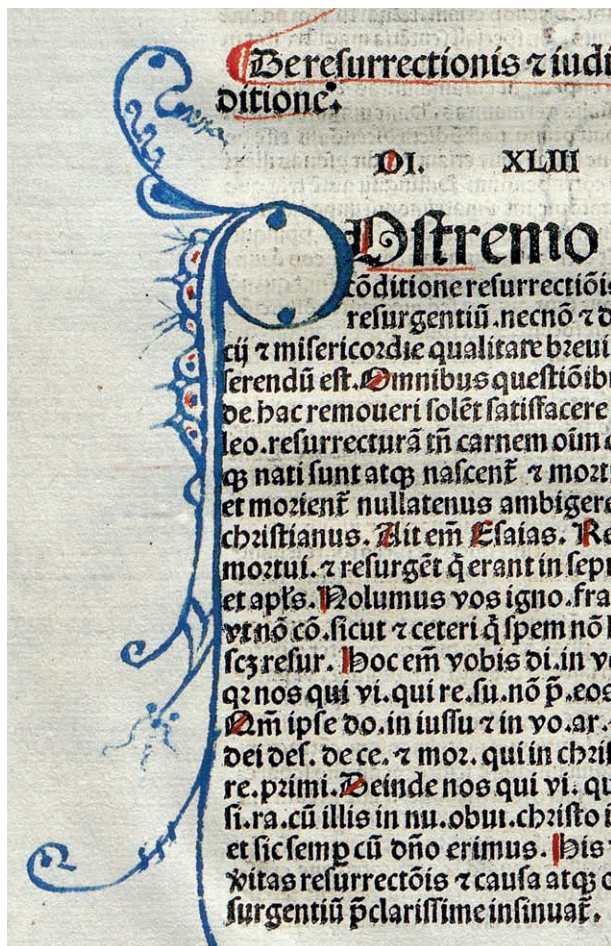 De resurrectionis ⁊ iudi
ditione.
DI. XLIII
POstremo
cōditione resurrectiōis
resurgentiū. necnō ⁊ d
cij ⁊ misericordie qualitate breui
serendū est. Omnibus questiōib
de hac remoueri solēt satisfacere
leo. resurrecturā tñ carnem oīm
qꝫ nati sunt atqꝫ nascent᷑ ⁊ mort
et morient᷑ nullatenus ambigere
christianus. Ait em̄ Esaias. Re
mortui. ⁊ resurgēt q̄ erant in sepu
et apl's. Nolumus vos igno. fra
vt nō cō. sicut ⁊ ceteri q̄ spem nō
scꝫ resur. Hoc em̄ vobis di. in v
qꝛ nos qui vi. qui re. su. nō p̄. eos
Qm̄ ipse do. in iussu ⁊ in vo. ar.
dei des. de ce. ⁊ mor. qui in chris
re. primi. Deinde nos qui vi. qu
si. ra. cū illis in nu. obui. christo i
et sic semꝑ cū dño erimus. His
vitas resurrectōis ⁊ causa atqꝫ
surgentiū p̄clarissime insinuat᷑.